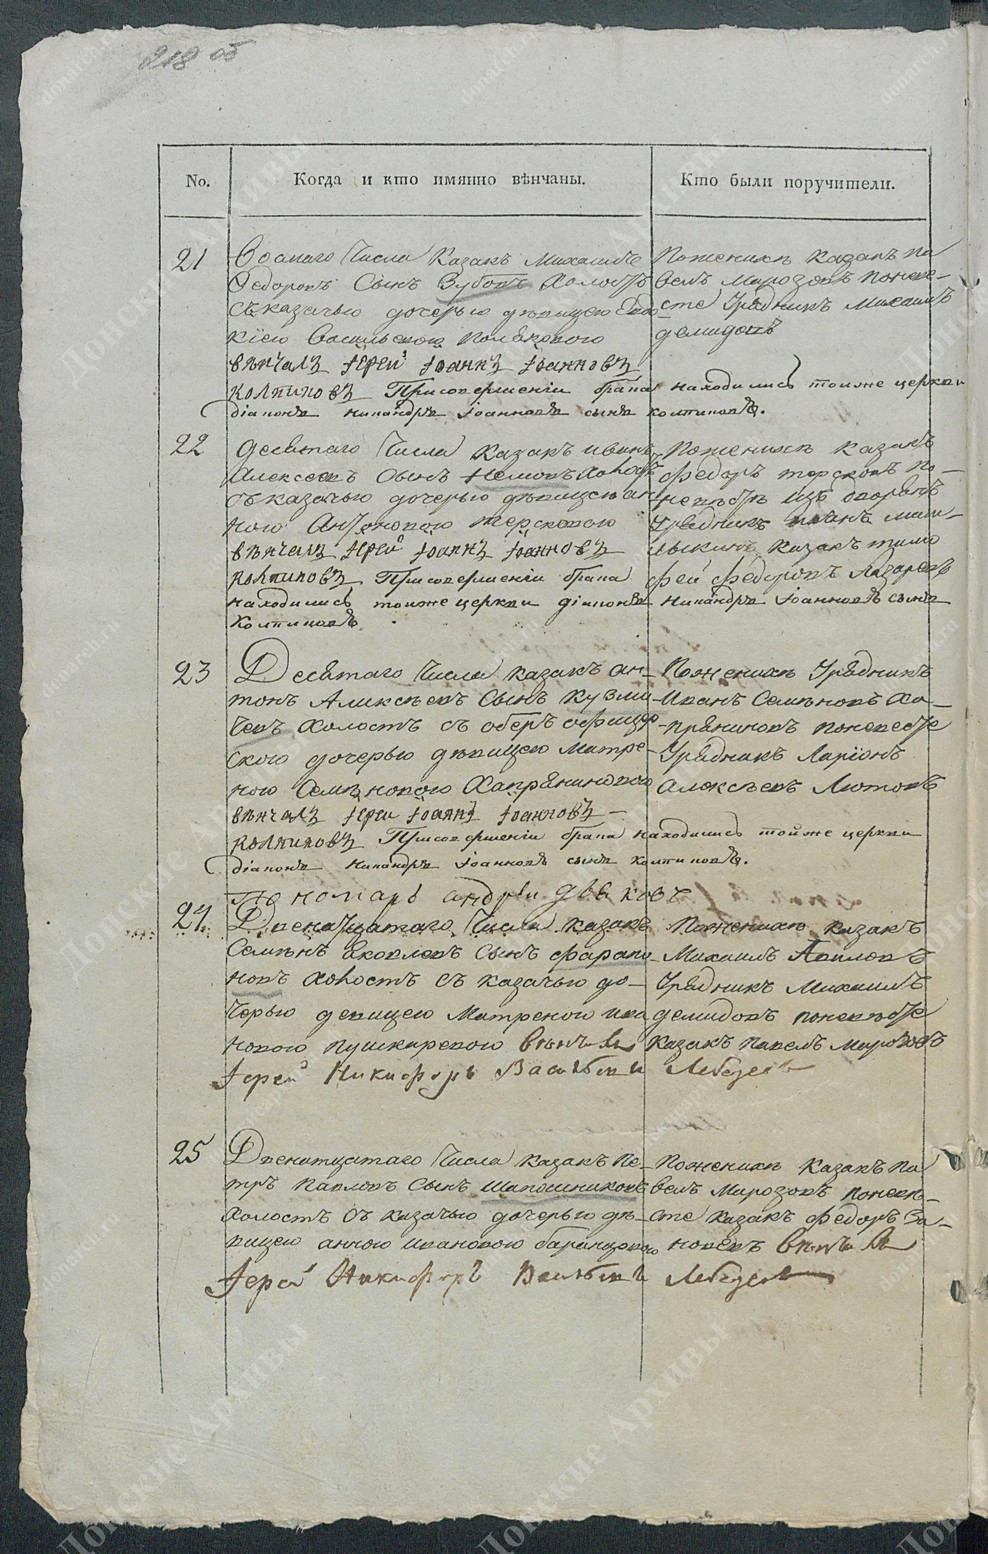 218 об
No.
Когда и кто имянно вѣнчаны.
Кто были поручители.
21
Осмаго Числа Казакъ Михаилъ
Ѳедоровъ Сынъ Зубовъ Холостъ
Съ казачью дочерью дѣвицею
Васильевою Поляковою
вѣнчалъ Іерей Іоаннъ Іоанновъ
Колпиковъ При совершеніи брака находились тойже церкви
діаконъ Никандръ Іоанновъ сынъ колпиковъ.
По женихѣ казакъ Па
велъ Морозовъ по неве
сте Урядникъ Михаилъ
демидовъ
22
Десятаго Числа казакъ иванъ
Алексеевъ Сынъ Немовъ Холостъ
Съ казачью дочерью дѣвицею ан
ною Антоновою терсковою
вѣнчалъ Іерей Іоаннъ Іоанновъ
колпиковъ При совершеніи брака
находились тойже церкви діаконъ Никандръ Іоанновъ сынъ
Колпиковъ.
По женихѣ казакъ
федоръ терсковъ по
Урядникъ
казакъ тимо
фей федоровъ Лазаревъ
23
Десятаго Числа казакъ ан
тонъ Алексѣевъ Сынъ Кузми
чевъ Холостъ съ оберъ офицер
скою дочерью дѣвицею матре
ною Семѣновою Хапряниновою
вѣнчалъ Іерей Іоаннъ Іоанновъ
колпиковъ При совершеніи брака находились тойже церкви
діаконъ Никандръ Іоанновъ сынъ колпиковъ.
Пономарь андрѣй дьяковъ
По женихѣ Урядникъ
Иванъ Семѣновъ Ха
пряниновъ по невестѣ
Урядникъ Ларіонъ
алексѣевъ Лютовъ
24
Двенатцатаго Числа казакъ
Семѣнъ Яковлевъ Сынъ фарапо
новъ Холостъ съ казачью до
черью девицею Матреною ива
новою пушкаревою
Іерей Никифоръ Васильевъ Лебедевъ
По женихѣ казакъ
Михаилъ Павловъ
Урядникъ Михаилъ
демидовъ по невѣсте
казакъ Павелъ Морозовъ
25
Двенатцатаго Числа казакъ Пе
тръ Павловъ Сынъ Шапошниковъ
Холостъ Съ казачью дочерью дѣ
вицею анною ивановою
Іерей Никифоръ Васильевъ Лебедевъ
По женихѣ казакъ Па
велъ Морозовъ по неве
сте казакъ Федоръ